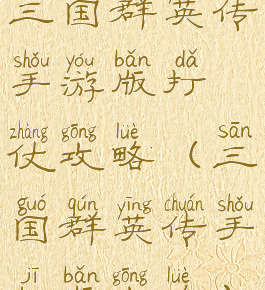 三国群英传
shǒu yóu bǎn dǎ
手游版打
zhàng gōng lüè sān
仗攻略（三
guó qún yīng chuán shǒu
国群英传手
jī bǎn gōng lüè